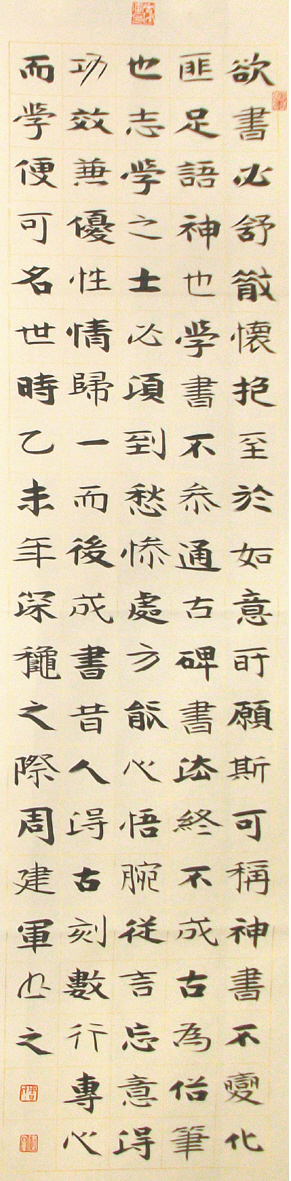 欲書必舒散懷抱至於如意所願斯可稱神書不變化
匪足語神也學書不叅通古碑書法終不成古為俗筆
也志學之士必須到愁慘處方能心悟腕從言忘意得
功效兼優性情歸一而後成書昔人得古刻數行專心
而學便可名世時乙未年深龝之際周建軍書之